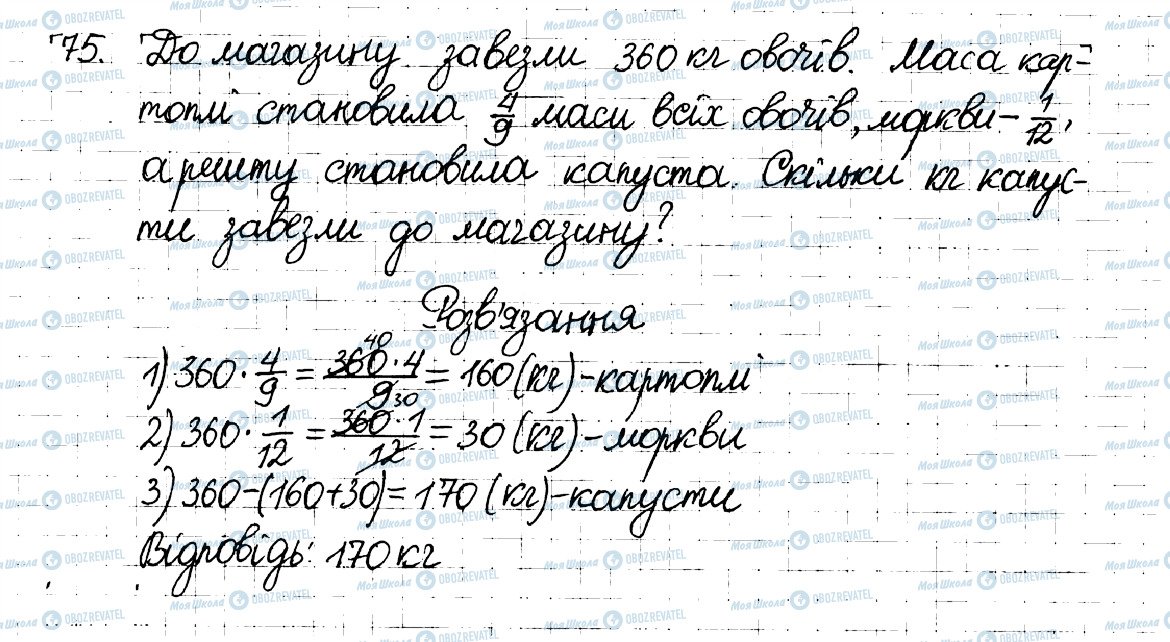 75. До магазину завезли 360 кг овочів. Маса кар-
топлі становила 4/9 маси всіх овочів, моркви - 1/12,
а решту становила капуста. Скільки кг капус-
ти завезли до магазину?
Розв'язання
1) 360 · 4/9 = 360 · 4 / 9 = 160 (кг) - картоплі
40
2) 360 · 1/12 = 360 · 1 / 12 = 30 (кг) - моркви
30
3) 360 - (160 + 30) = 170 (кг) - капусти
Відповідь: 170 кг
Моя Школа OBOZREVATEL